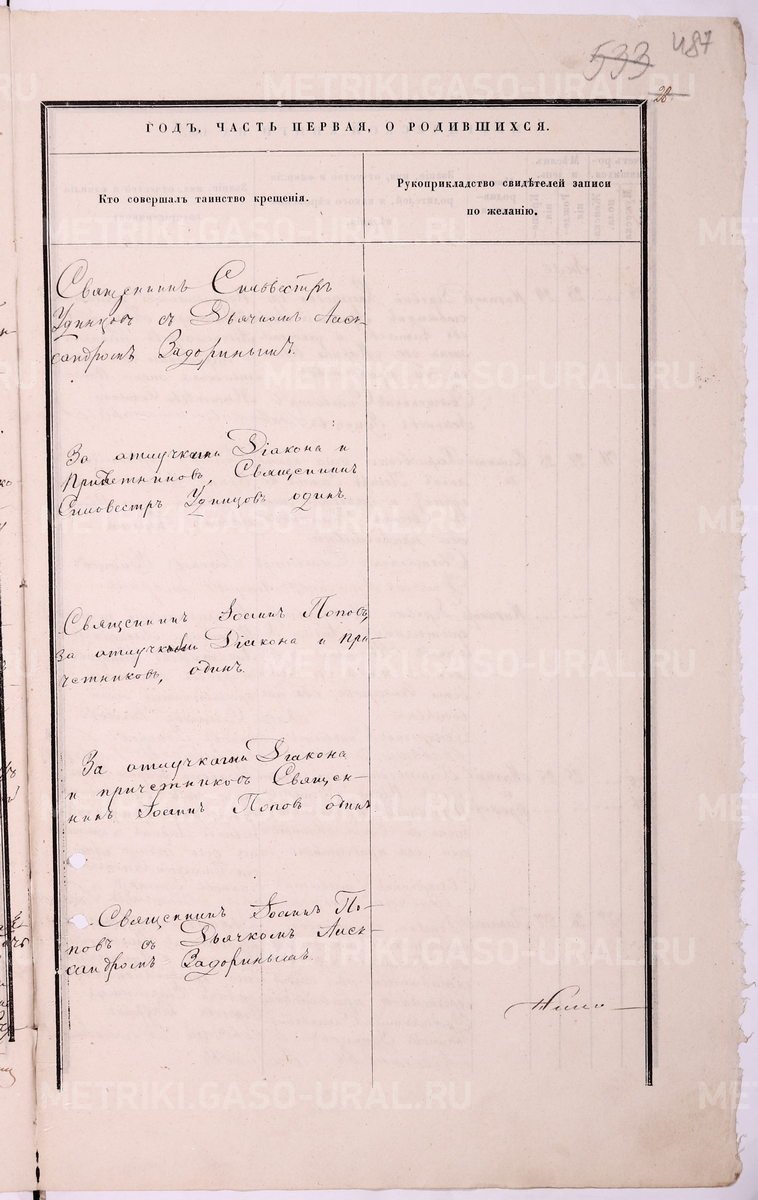 533 487
28.
ГОДЪ, ЧАСТЬ ПЕРВАЯ, О РОДИВШИХСЯ.
Кто совершалъ таинство крещенія.
Рукоприкладство свидѣтелей записи
по желанію.
Священникъ Сильвестръ
Удинцовъ съ Дьячкомъ Алек-
сандромъ Задоринымъ.
За отлучками Діакона и
Причетниковъ, Священникъ
Сильвестръ Удинцовъ одинъ.
Священникъ Іоаннъ Поповъ,
за отлучками Діакона и при-
четниковъ, одинъ.
За отлучками Діакона
и причетниковъ Священ-
никъ Іоаннъ Поповъ одинъ
Священникъ Іоаннъ По-
повъ съ Дьячкомъ Алек-
сандромъ Задоринымъ.
METRIKI.GASO-URAL.RU